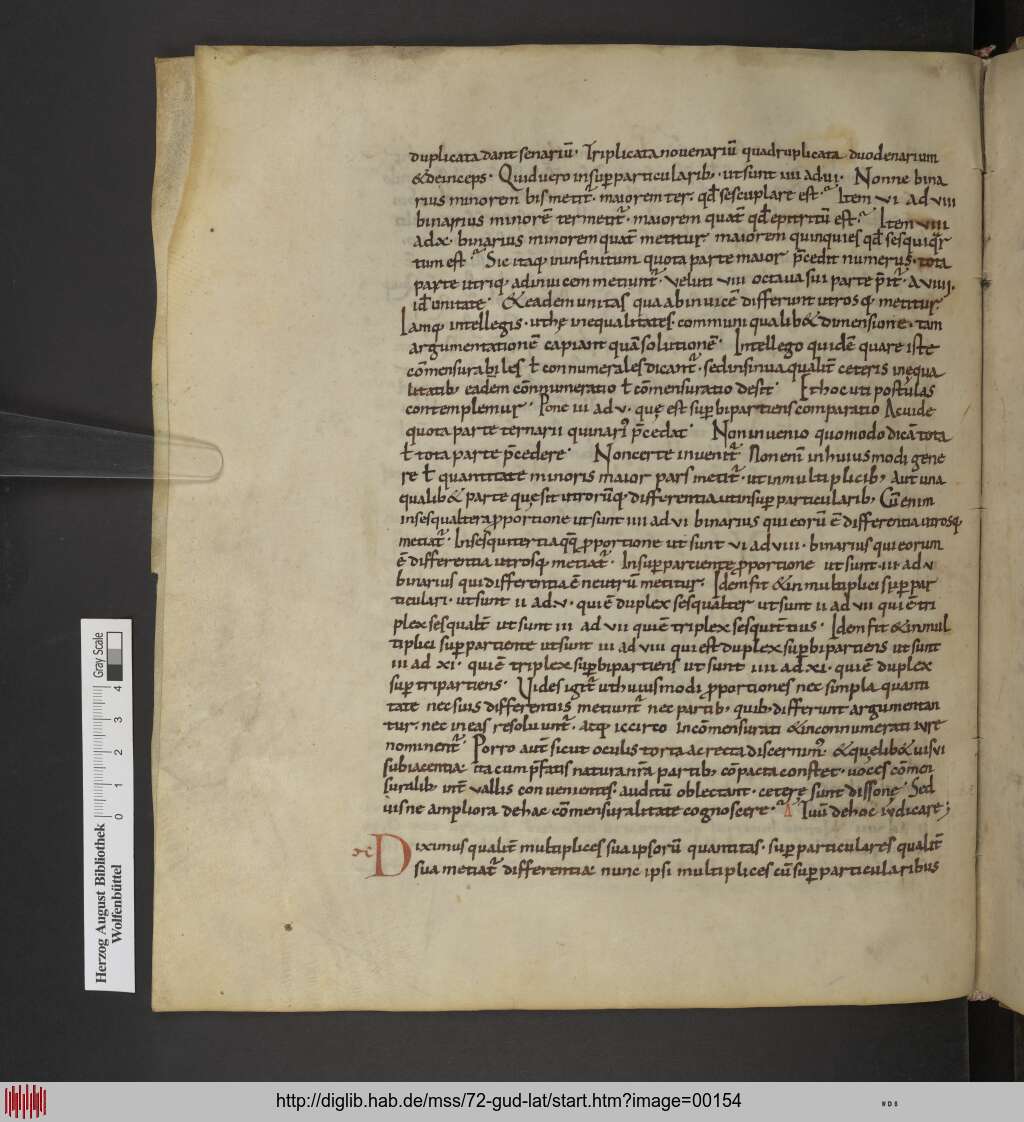 duplicata dant senariū· Triplicata novenariū quadruplicata duodenarium
& deinceps· Quid uero in sup̄particularib; · ut sunt iiii ad vi· Nonne bina
rius minorem bis metit̄· maiorem ter; qd̄ sescuplare est· Item vi ad viii
binarius minorē ter metit̄· maiorem quat̄ qd̄ epitritū est· Item viii
ad x· binarius minorem quat̄ metitur; maiorem quinquies qd̄ sesquiqr̄
tum est· Sic itaq; in infinitum quota parte maior p̄cedit numerus· tota
parte utriq; ad inuicem metiunt̄· Veluti viii octaua sui parte p̄it̄· a viiii·
id ē unitate· & eadem unitas qua ab inuicē differunt utrosq; metitur
Iamq; intellegis· ut hę inequalitates communi qualib& dimensione· tam
argumentationē capiant quā solutionē· Intellego quidē quare iste
cōmensurabiles ł connumerales dicant̄· sed insinua qualit̄ ceteris inequa
litatib; eadem cōnumeratio ł cōmensuratio desit· Et hoc uti postulas
contemplemur· Pone iii ad v· quę est sup̄bipartiens comparatio Ac uide
quota parte ternarii quinari' p̄cedat· Non inuenio quomodo dicā tota
ł tota parte p̄cedere· Non certe inuenit̄ Non enī in huius modi gene
re ł quantitate minoris maior pars metit̄· ut in multiplicib; Aut una
qualib& parte que sit utrorūq; differentia ut in sup̄particularib; Cū enim
in sesqualtera p̄portione ut sunt iiii ad vi binarius qui eorū ē differentia utrosq;
metiat̄· In sesquitertia qq; p̄portione ut sunt vi ad viii· binarius qui eorum
ē differentia utrosq; metiat̄· In sup̄partiente p̄portione ut sunt iii ad v
binarius qui differentia ē neutrū metitur; Idem fit & in multiplici sup̄par
ticulari· ut sunt ii ad v· qui ē duplex sesqualter ut sunt ii ad vii qui ē tri
plex sesqualt̄ ut sunt iii ad vii qui ē triplex sesquit̄tius· Idem fit & in mul
tiplici sup̄partiente ut sunt iii ad viii qui est duplex sup̄bipartiens ut sunt
iii ad xi· qui ē triplex sup̄bipartiens ut sunt iiii ad xi· qui ē duplex
sup̄tripartiens· Vides igit̄ ut huius modi p̄portiones nec simpla quanti
tate nec suis differentiis metiunt̄ nec partib; quib; differunt argumentan
tur; nec in eas resoluunt̄· atq; iccirco incōmensurati & inconnumerati iure
nominent̄· Porro aut̄ sicut oculis torta ac recta discernim'· & quelib& uisui
subiacentia ita cum p̄fatis natura nr̄a partib; cōpacta constet· uoces cōmen
suralib; int̄uallis conuenientes auditū oblectant· cetere sunt dissone· Sed
uisne ampliora de hac cōmensuralitate cognoscere· Δ Iuuū de hoc iudicare;
Diximus qualit̄ multiplices sua ipsorū quantitas· sup̄particulares qualit̄
sua metiat̄ differentia nunc ipsi multiplices cū sup̄particularibus
Herzog August Bibliothek
Wolfenbüttel
Gray Scale
0 1 2 3 4
http://diglib.hab.de/mss/72-gud-lat/start.htm?image=00154
WDB